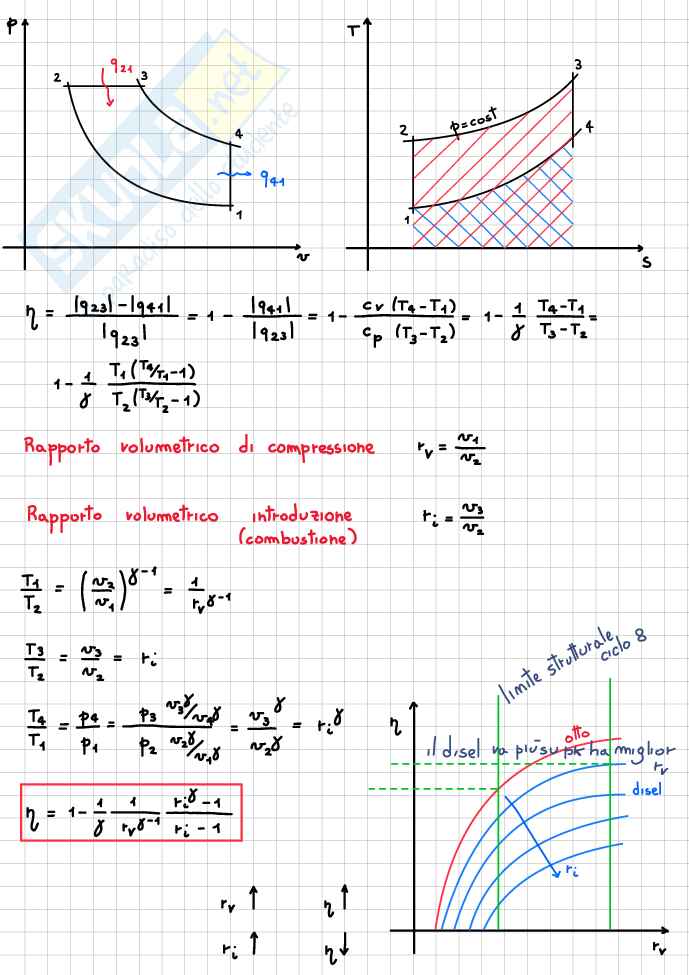 p
T
2
q₂₁
3
4
q₄₁
1
v
3
p=cost
2
4
1
s
η = (|q₂₃|-|q₄₁|)/|q₂₃| = 1 - |q₄₁|/|q₂₃| = 1 - cᵥ (T₄-T₁)/cₚ (T₃-T₂) = 1 - 1/γ (T₄-T₁)/(T₃-T₂) =
1 - 1/γ T₁(T₄/T₁-1)/T₂(T₃/T₂-1)
Rapporto volumetrico di compressione rᵥ = v₁/v₂
Rapporto volumetrico introduzione rᵢ = v₃/v₂
(combustione)
T₁/T₂ = (v₂/v₁)^γ-1 = 1/rᵥ^γ-1
T₃/T₂ = v₃/v₂ = rᵢ
T₄/T₁ = p₄/p₁ = p₃ v₃^γ/v₄^γ / p₂ v₂^γ/v₁^γ = v₃^γ/v₂^γ = rᵢ^γ
η = 1 - 1/γ 1/rᵥ^γ-1 (rᵢ^γ - 1)/(rᵢ - 1)
limite strutturale
ciclo 8
η
otto
il disel va più su pk ha miglior
rᵥ
disel
rᵢ
rᵥ
rᵥ ↑ η ↑
rᵢ ↑ η ↓
SKUOLA.net